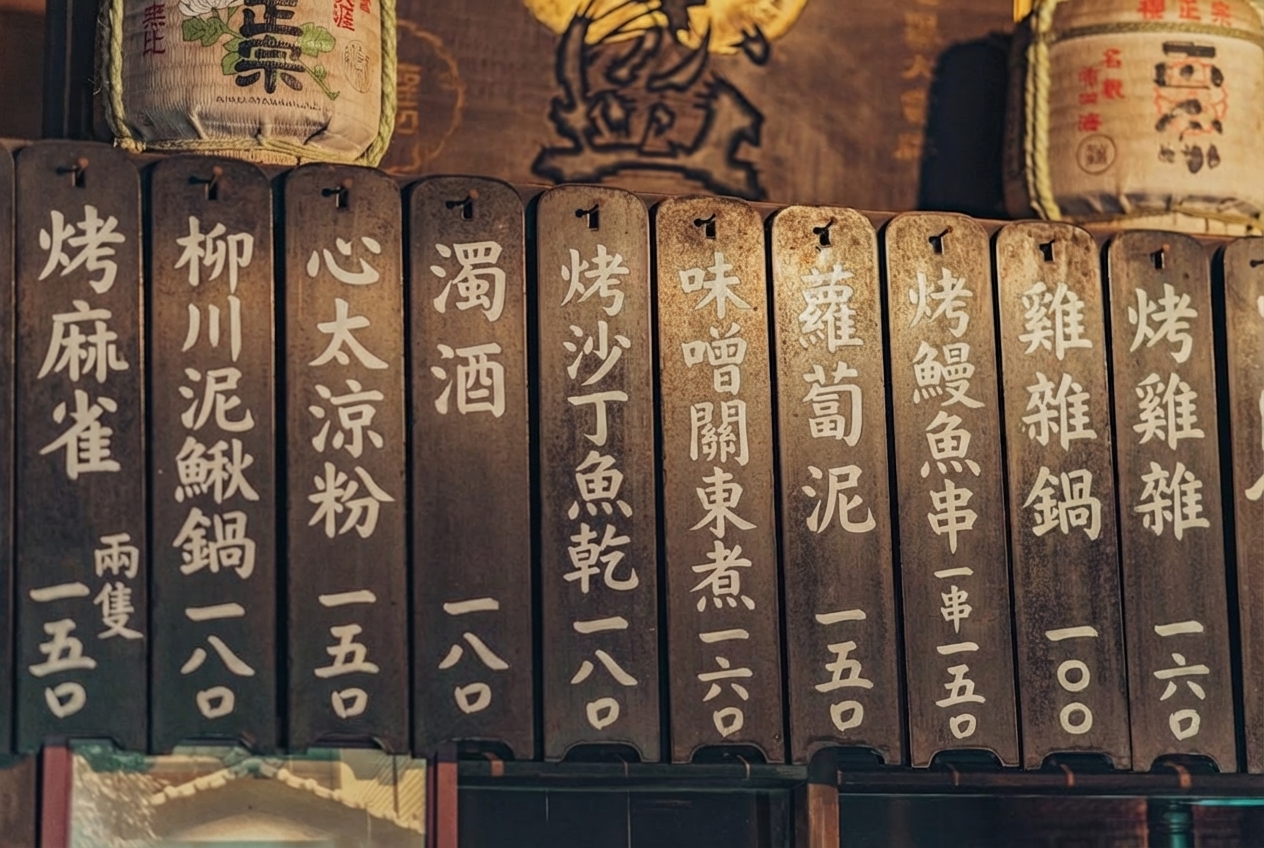 正宗
烤雞雜 一六〇
雞雜鍋 一〇〇
烤鰻魚串 一串一五〇
蘿蔔泥 一五〇
味噌關東煮 一六〇
烤沙丁魚乾 一八〇
濁酒 一八〇
心太涼粉 一五〇
柳川泥鰍鍋 一八〇
烤麻雀 兩隻 一五〇